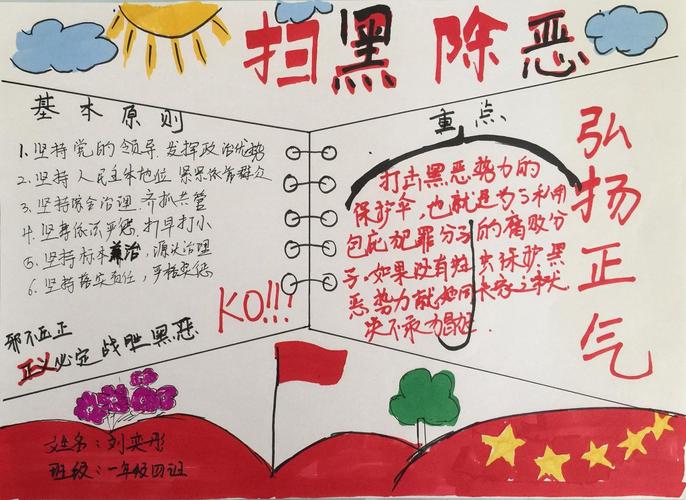 扫黑除恶
基本原则
1.坚持党的领导,发挥政治优势
2.坚持人民主体地位,紧紧依靠群众
3.坚持综合治理,齐抓共管
4.坚持依法严惩,打早打小
5.坚持标本兼治,源头治理
6.坚持落实责任,严格实惩
KO!!!
邪不压正
正义必定战胜黑恶
重点
打击黑恶势力的
保护伞,也就是为了利用
包庇犯罪分子的腐败分
子。如果没有
保护黑
恶势力就如同
弘扬正气
姓名:刘奕彤
班级:一年级四班